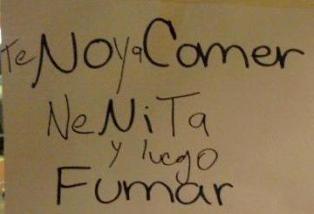 Te NoyaComer
NeNiTa
y luego
Fumar